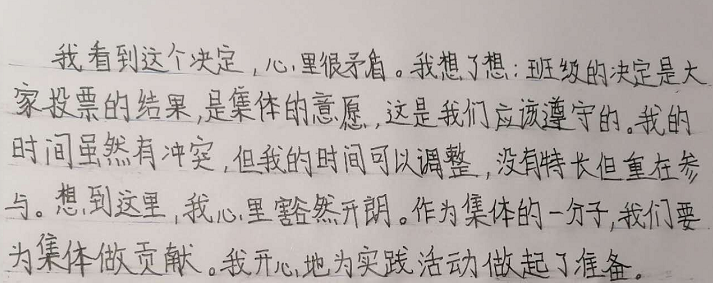 我看到这个决定,心里很矛盾。我想了想:班级的决定是大
家投票的结果,是集体的意愿,这是我们应该遵守的。我的
时间虽然有冲突,但我的时间可以调整,没有特长但重在参
与。想到这里,我心里豁然开朗。作为集体的一分子,我们要
为集体做贡献。我开心地为实践活动做起了准备。